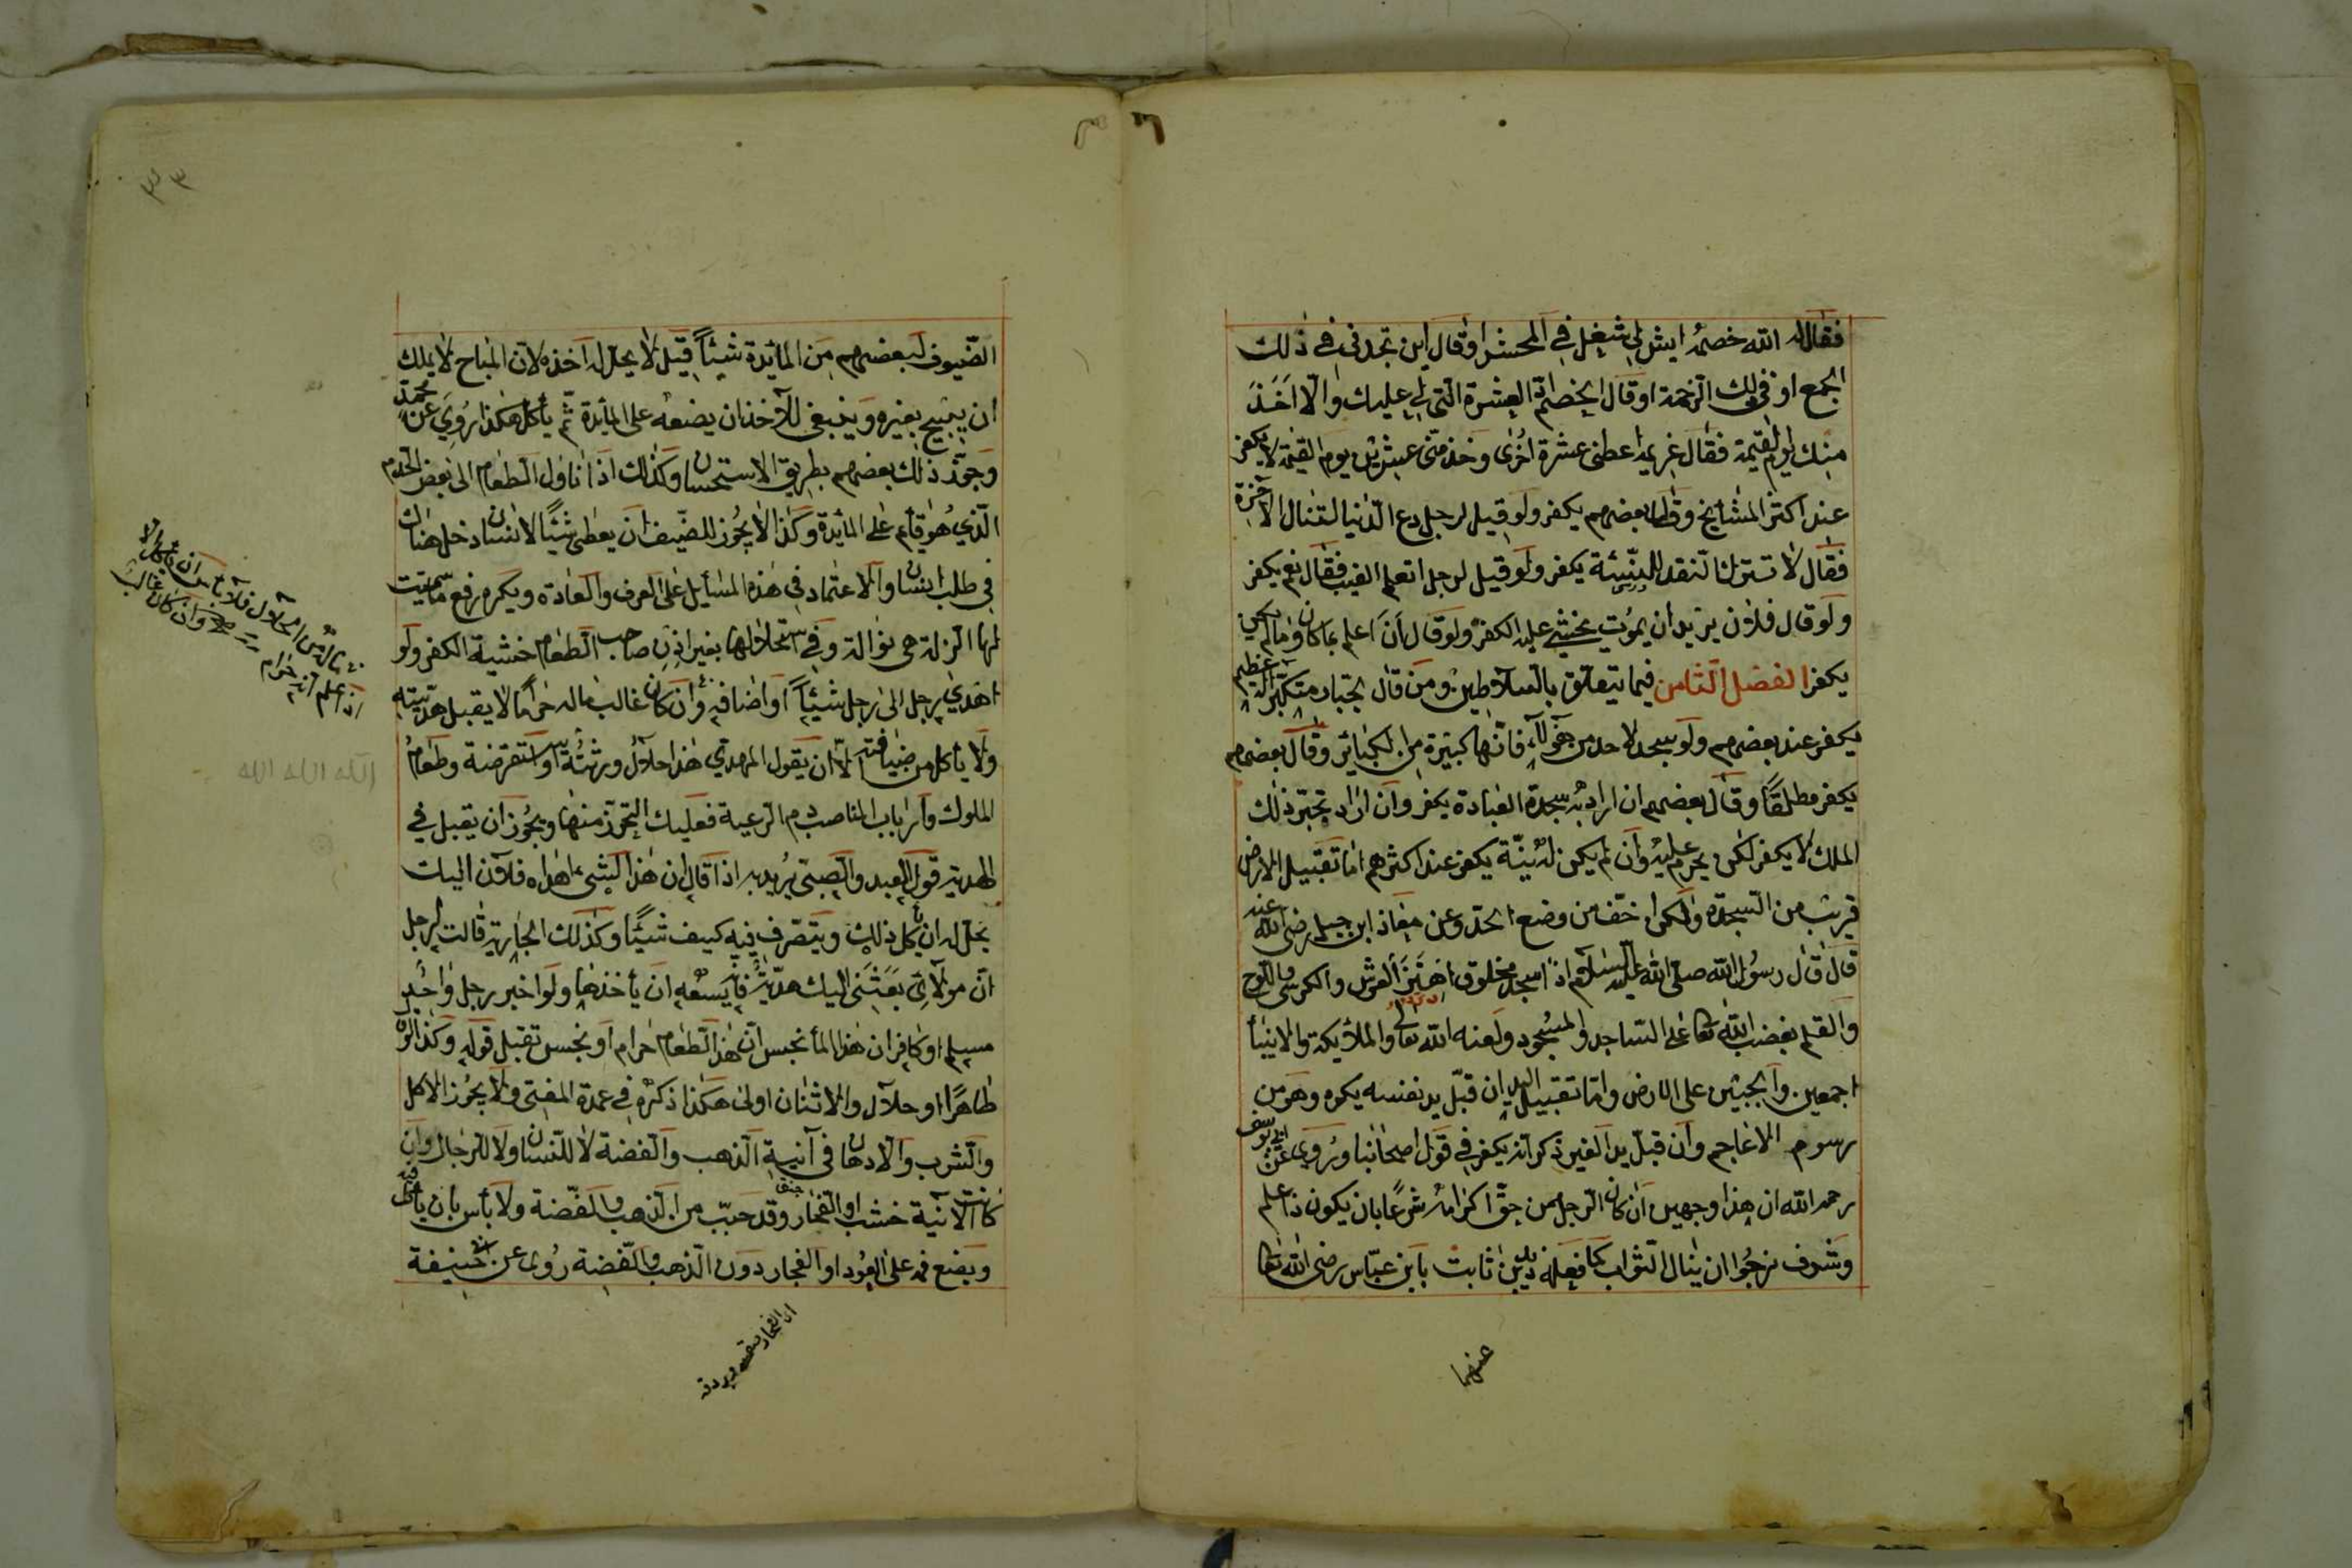 فقال له الله خصمه ايش لى شغل فى المحشر او قال اين تجدنى فى ذلك
الجمع او فى تلك الزحمة او قال لخصمه ادّ العشرة التى لى عليك والا اخذ
منك يوم القيمة فقال غريمه اعطنى عشرة اخرى وخذ منى عشرين يوم القيمة لا يكفر
عند اكثر المشايخ وقال بعضهم يكفر ولو قيل لرجل دع الدنيا لتنال الآخرة
فقال لا تترك النقد للنسئة يكفر ولو قيل لرجل اتعلم الغيب فقال نعم يكفر
ولو قال فلان يريد ان يموت يخشى عليه الكفر ولو قال أنا اعلم بما كان وما لم يكن
يكفر الفصل الثامن فيما يتعلق بالسلاطين ومن قال لجبار متكبر اله العظيم
يكفر عند بعضهم ولو سجد لاحد من هؤلاء فانها كبيرة من الكبائر وقال بعضهم
يكفر مطلقًا وقال بعضهم ان اراد به سجدة العبادة يكفر وان اراد تجبر ذلك
الملك لا يكفر لكن يحرم عليه وان لم يكن له نيّة يكفر عند اكثرهم اما تقبيل الارض
قريب من السجدة ولكن اخف من وضع الخد وعن معاذ ابن جبل رضى الله عنه
قال قال رسول الله صلى الله عليه السلام اذا سجد مخلوق اهتز العرش والكرسى واللوح
والقلم بغضب الله تعا على الساجد والمسجود ولعنه الله تعالى والملائكة والانبيأ
اجمعين والجبين على الارض واما تقبيل اليد ان قبّل يد نفسه يكره وهو من
رسوم الاعاجم وان قبّل يد الغير ذكر انه يكفر فى قول اصحابنا وروى عن ابى يوسف
رحمه الله ان هذا وجهين ان كان الرجل ممن حق اكرامه شرعًا بان يكون ذا علم
وشرف نرجوا ان ينال الثواب كما فعله زيد بن ثابت بابن عباس رضى الله تعا
عنهما
الضيوف لبعضهم من المائدة شيئاً قيل لا يحل له اخذه لان المباح لا يملك
ان يبيح بغيره وينبغى للآخذ ان يضعه على المائدة ثم يأكل هكذا روى عن محمد
وجوّز ذلك بعضهم بطريق الاستحسان وكذلك اذا ناول الطعام الى بعض الخدم
الذى هو قائم على المائدة وكذا لا يجوز للضيف ان يعطى شيئًا لانسان دخل هناك
فى طلب انسان والاعتماد فى هذه المسائل على العرف والعادة ويكره رفع ما سميت
لها الزلة هى نوالة وفى استحلالها بغير اذن صاحب الطعام خشية الكفر ولو
اهدى رجل الى رجل شيئاً او اضافه وان كان غالب ماله حراما لا يقبل هديته
ولا يأكل من ضيافته الا ان يقول المهدى هذا حلال ورثته او استقرضته وطعام
الملوك وارباب المناصب دم الرعية فعليك التحرز منها ويجوز ان يقبل فى
الهدية قول العبد والصبى يريد به اذا قال ان هذا الشىء اهداه فلان اليك
يحل له ان يأكل ذلك ويتصرف فيه كيف شيئًا وكذلك الجارية قالت لرجل
ان مولاى بعثنى اليك هدية فانه يسعه ان يأخذها ولو اخبر رجل واحد
مسلم او كافر ان هذا المأ نجس ان هذا الطعام حرام او نجس تقبل قوله وكذا لو اه
طاهرًا او حلال والاثنان اولى هكذا ذكره فى عمدة المفتى ولا يجوز الاكل
والشرب والادهان فى آنية الذهب والفضة لا للنسان ولا للرجال وان
كانت الآنية خشب او الفخار وقد حبّب من الذهب والفضة ولا بأس بان يأكل فيه
ويضع فمه على العود او الفخار دون الذهب والفضة روى عن ابى حنيفة
الله الله الله